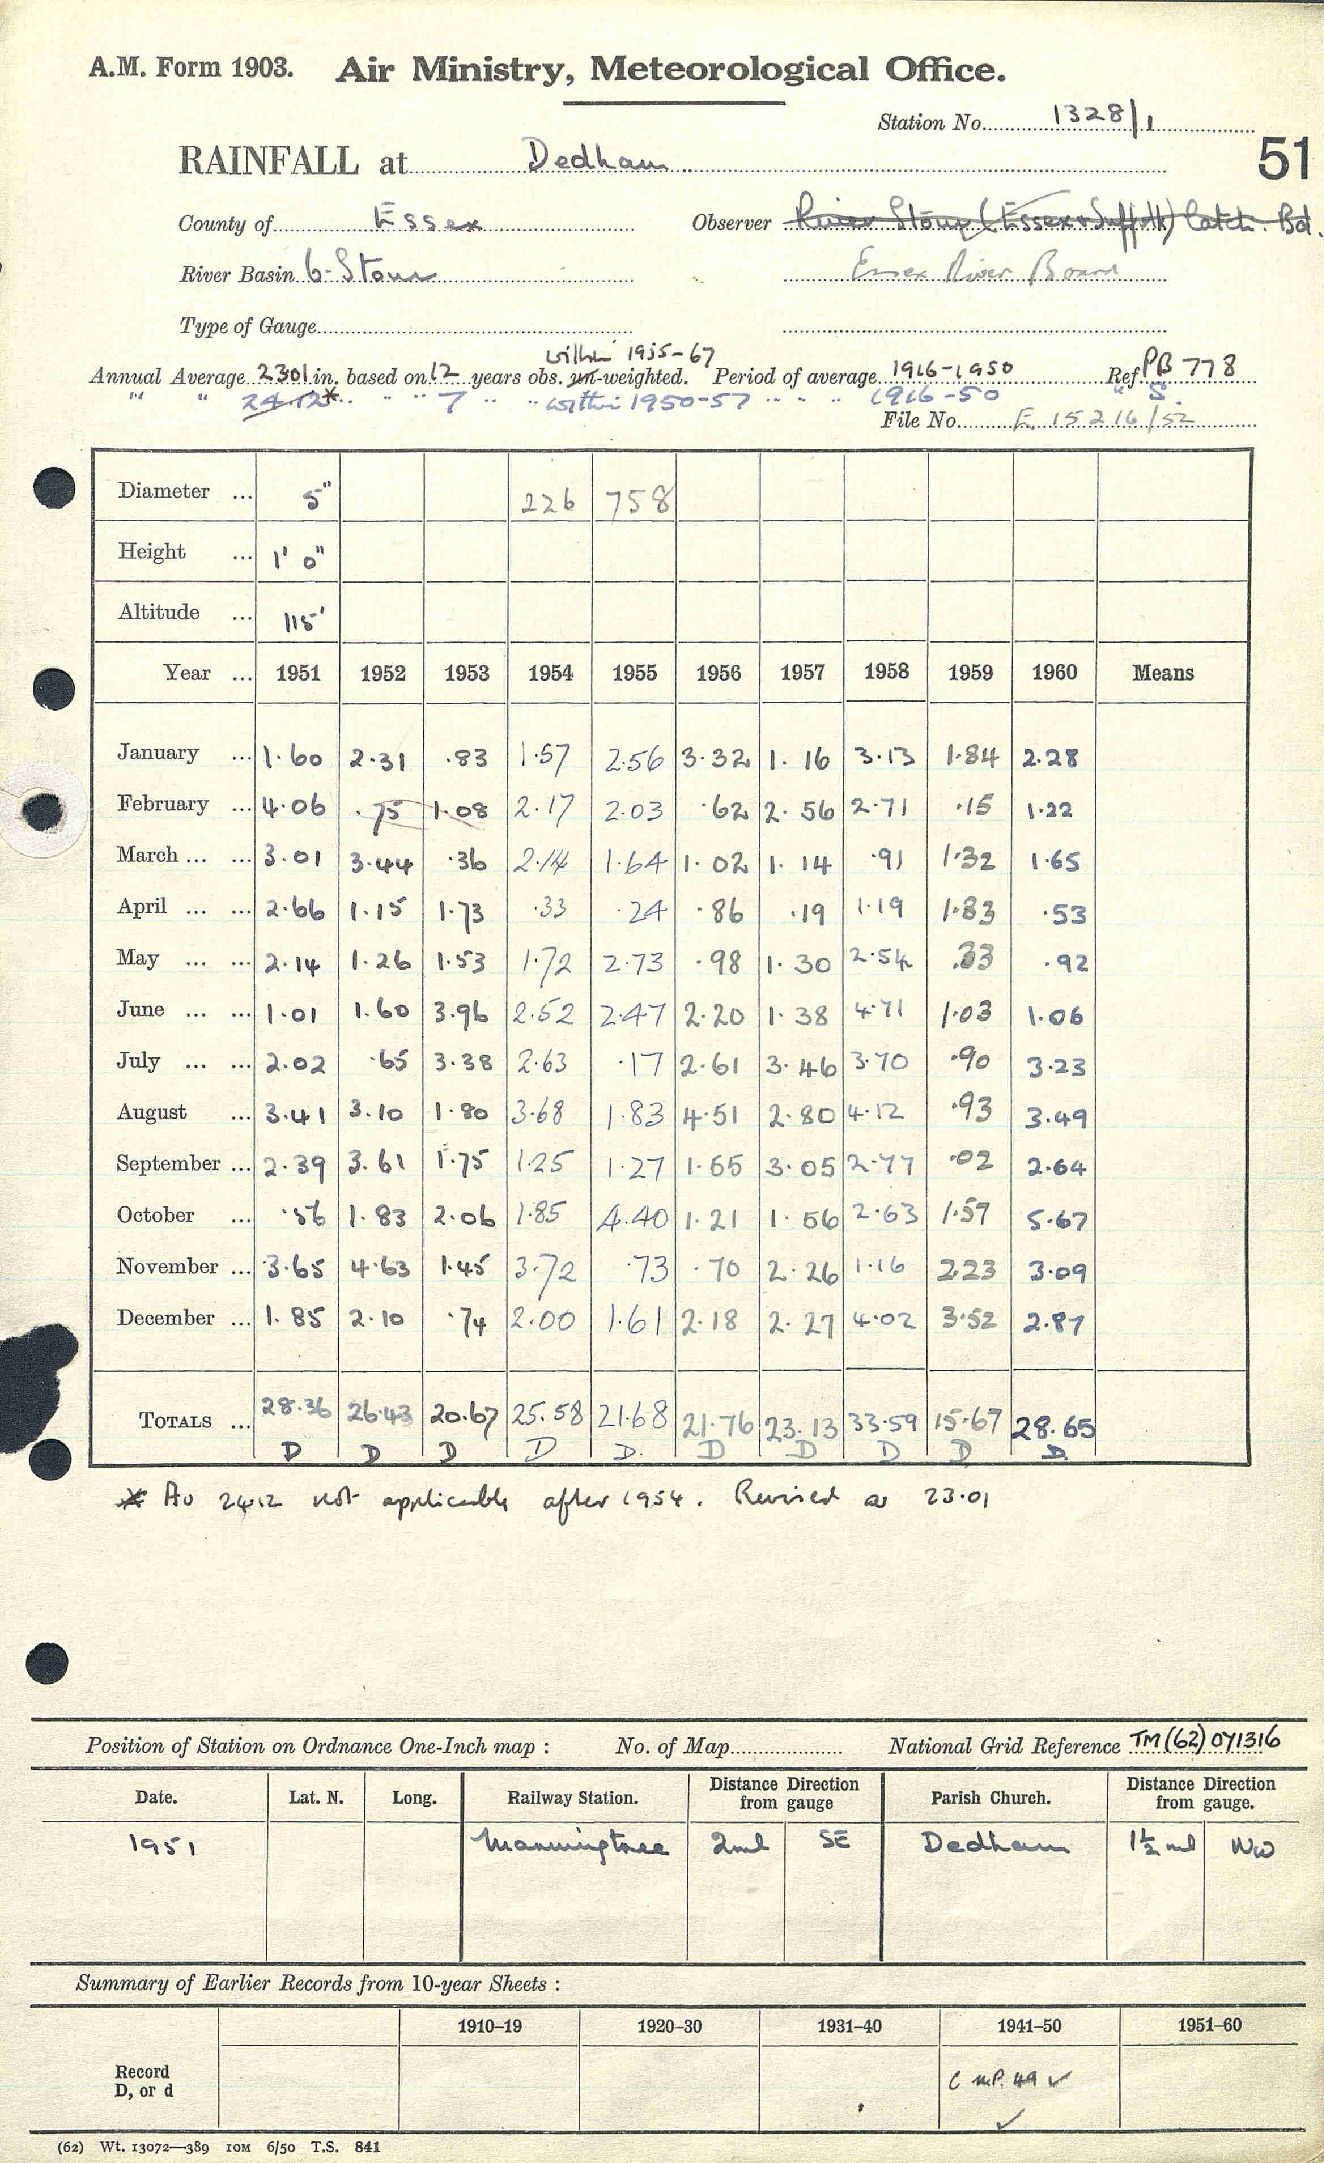 A.M. Form 1903. Air Ministry, Meteorological Office.
Station No. 1328/1
51
RAINFALL at Dedham
County of Essex Observer River Stour (Essex & Suffolk) Catch. Bd.
River Basin 6-Stour Essex River Board
Type of Gauge
within 1935-67
Annual Average 2301 in. based on 12 years obs. un-weighted. Period of average 1916-1950 Ref. PB 778
" " 24.12* " " 7 " " within 1950-57 " " " 1916-50 " S.
File No. E 15216/52
Diameter ... 5" 226 758
Height ... 1' 0"
Altitude ... 115'
Year ... 1951 1952 1953 1954 1955 1956 1957 1958 1959 1960 Means
January ... 1.60 2.31 .83 1.57 2.56 3.32 1.16 3.13 1.84 2.28
February ... 4.06 .75 1.08 2.17 2.03 .62 2.56 2.71 .15 1.22
March ... ... 3.01 3.44 .36 2.14 1.64 1.02 1.14 .91 1.32 1.65
April ... ... 2.66 1.15 1.73 .33 .24 .86 .19 1.19 1.83 .53
May ... ... 2.14 1.26 1.53 1.72 2.73 .98 1.30 2.54 .33 .92
June ... ... 1.01 1.60 3.96 2.52 2.47 2.20 1.38 4.71 1.03 1.06
July ... ... 2.02 .65 3.38 2.63 .17 2.61 3.46 3.70 .90 3.23
August ... 3.41 3.10 1.80 3.68 1.83 4.51 2.80 4.12 .93 3.49
September ... 2.39 3.61 1.75 1.25 1.27 1.55 3.05 2.77 .02 2.64
October ... .56 1.83 2.06 1.85 4.40 1.21 1.56 2.63 1.57 5.67
November ... 3.65 4.63 1.45 3.72 .73 .70 2.26 1.16 2.23 3.09
December ... 1.85 2.10 .74 2.00 1.61 2.18 2.27 4.02 3.52 2.87
TOTALS ... 28.36 26.43 20.67 25.58 21.68 21.76 23.13 33.59 15.67 28.65
D D D D D. D D D D D
* Av 24.12 not applicable after 1954. Revised as 23.01
Position of Station on Ordnance One-Inch map : No. of Map National Grid Reference TM(62)071316
Date. Lat. N. Long. Railway Station. Distance Direction from gauge Parish Church. Distance Direction from gauge.
1951 Manningtree 2ml SE Dedham 1½ ml NW
Summary of Earlier Records from 10-year Sheets :
1910–19 1920–30 1931–40 1941–50 1951–60
Record
D, or d
C MP. 49 ✓
✓
(62) Wt. 13072—389 IOM 6/50 T.S. 841